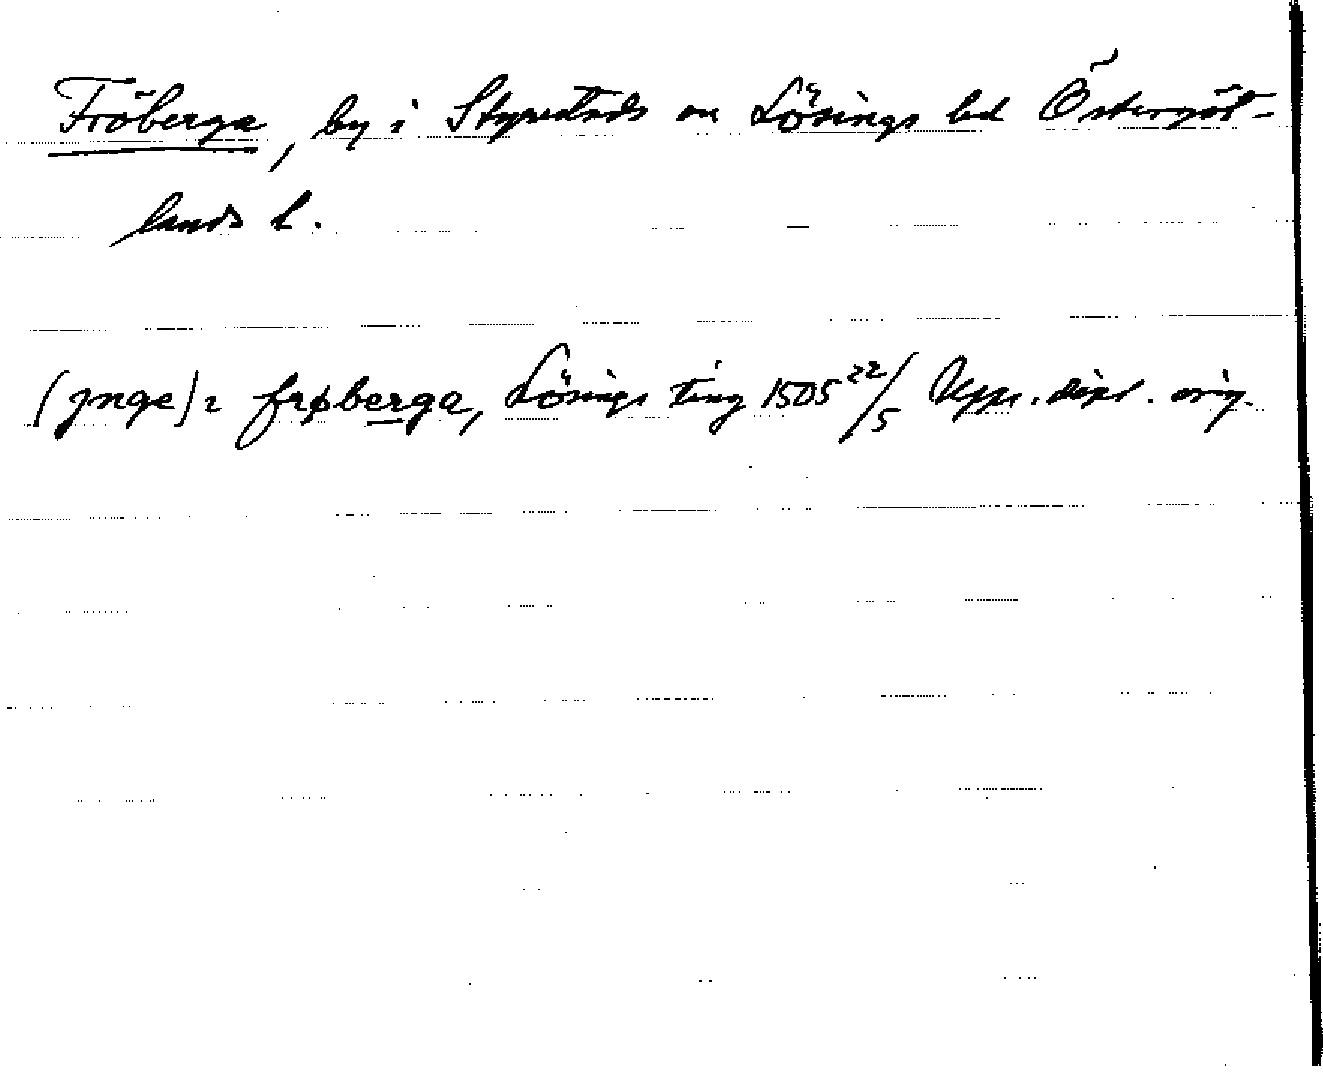 Fröberga, by i Styrestads sn Lösings hd Östergöt-
lands l.
(jnge) i frøberga, Lösings ting 1505 22/5 Upps. dipl. orig.